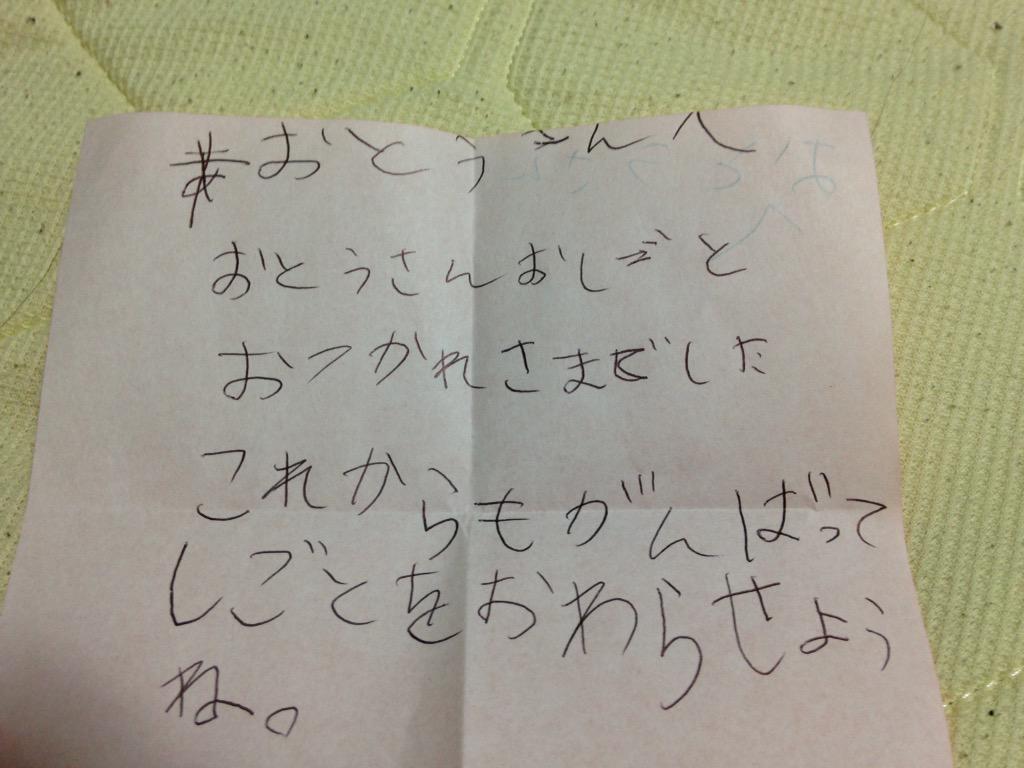 おとうさんへ
おとうさんおしごと
おつかれさまでした
これからもがんばって
しごとをおわらせよう
ね。